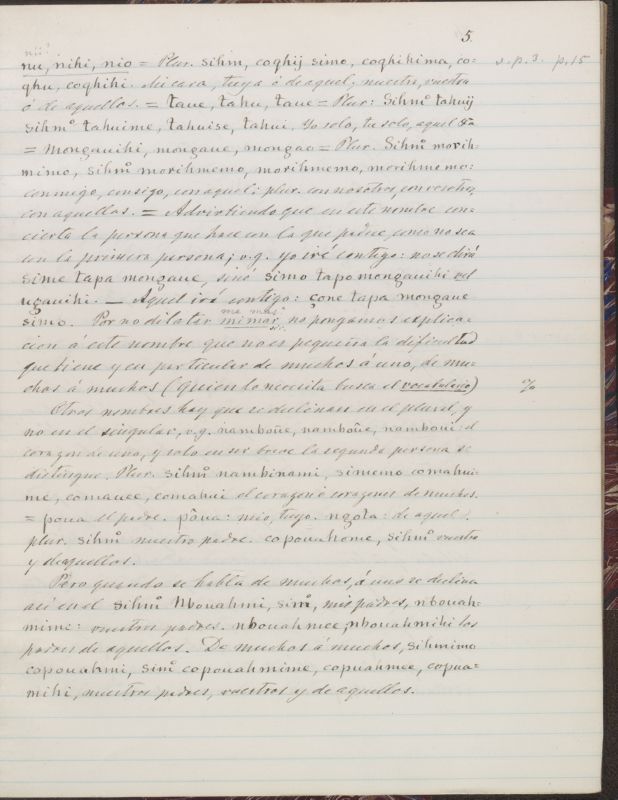 5.
nií?
nu, nihi, nio = Plur. sihm, coghij simo, coghihima, co= v. p. 3. p. 15
ghu, coghihi. Mi cara, tuya ó de aquel; nuestra, vuestra
ó de aquellos. = taue, tahu, taue = Plur: Sihm̊ tahuij
sihm̊ tahuime, tahuise, tahui. Yo solo, tu solo, aquel
= Mongauihi, mongaue, mongao = Plur. Sihm̊ morih=
mimo, sihm̊ morihmemo, morihmemo, morihmo mo:
conmigo, consigo, con aquel: plur. con nosotros, con vosotros,
con aquellos. = Advirtiendo que en este nombre con=
cierta la persona que hace con la que padece, como no sea
con la primera persona; v.g. yo iré contigo: no se dirá
sime tapa mongaue, sinó simo tapo mongauihi vel
ugauihi. — Aquel irá contigo: çone tapa mongaue
me mas
simo. Por no dilatar mimar, no pongamos explica=
cion á este nombre que no es pequeña la dificultad
que tiene y en particular de muchos á uno, de mu=
chos á muchos (quien lo necesita busca el vocabulario) %
Otros nombres hay que se declinan en el plural, y
no en el singular, v.g. namboûe, namboûe, namboui: el
corazon de uno, y solo en ser breve la segunda persona se
distingue. Plur. sihm̊ nambinami, simemo comahui=
me, comauee, comahui el corazon ó corazones de muchos.
= poua el padre. pôua: mio, tuyo. ngota: de aquel.
plur. sihm̊ nuestro padre. copouahome, sihm̊ vuestro
y de aquellos.
Pero quando se habla de muchos, á uno se declina
asi en el sihm̊ Nbouahmi, sim̊, mis padres, nbouah=
mime: vuestros padres. nbouahmee, nbouahmihi los
padres de aquellos. De muchos á muchos, sihmimo
copouahmi, sim̊ copouahmime, copuahmee, copua=
mihi, nuestros padres, vuestros y de aquellos.